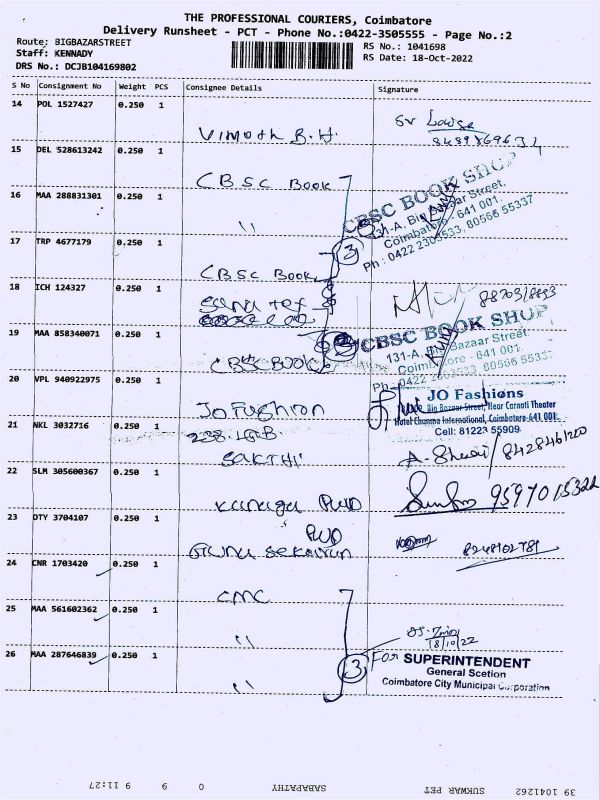 THE PROFESSIONAL COURIERS, Coimbatore
Delivery Runsheet - PCT - Phone No.:0422-3505555 - Page No.:2
Route: BIGBAZARSTREET
Staff: KENNADY
DRS No.: DCJB104169802
RS No.: 1041698
RS Date: 18-Oct-2022
S No Consignment No Weight PCS Consignee Details Signature
14 POL 1527427 0.250 1
Vimoth B.H.
15 DEL 528613242 0.250 1
CBSC Book
16 MAA 288831301 0.250 1
"
CBSC BOOK SHOP
131-A, Big Bazaar Street,
Coimbatore - 641 001.
Ph : 0422 2303533, 80566 55337
3
17 TRP 4677179 0.250 1
CBSC Book
18 ICH 124327 0.250 1
19 MAA 858340071 0.250 1
CBSC BOOK
CBSC BOOK SHOP
131-A, Big Bazaar Street,
Coimbatore - 641 001.
Ph : 0422 2303533, 80566 55337
20 VPL 940922975 0.250 1
Jo Fashion
JO Fashions
Big Bazaar Street, Near Carnati Theater
Coimbatore-641 001.
Cell: 81223 55909
21 NKL 3032716 0.250 1
SAKTHI
22 SLM 305600367 0.250 1
PWD
9597015322
23 DTY 3704107 0.250 1
PWD
8248102781
24 CNR 1703420 0.250 1
CMC
25 MAA 561602362 0.250 1
"
18/10/22
26 MAA 287646839 0.250 1
"
3
For SUPERINTENDENT
General Scetion
Coimbatore City Municipal Corporation
39 1041262 SUKWAR PET SABAPATHY 0 9 9 11:27